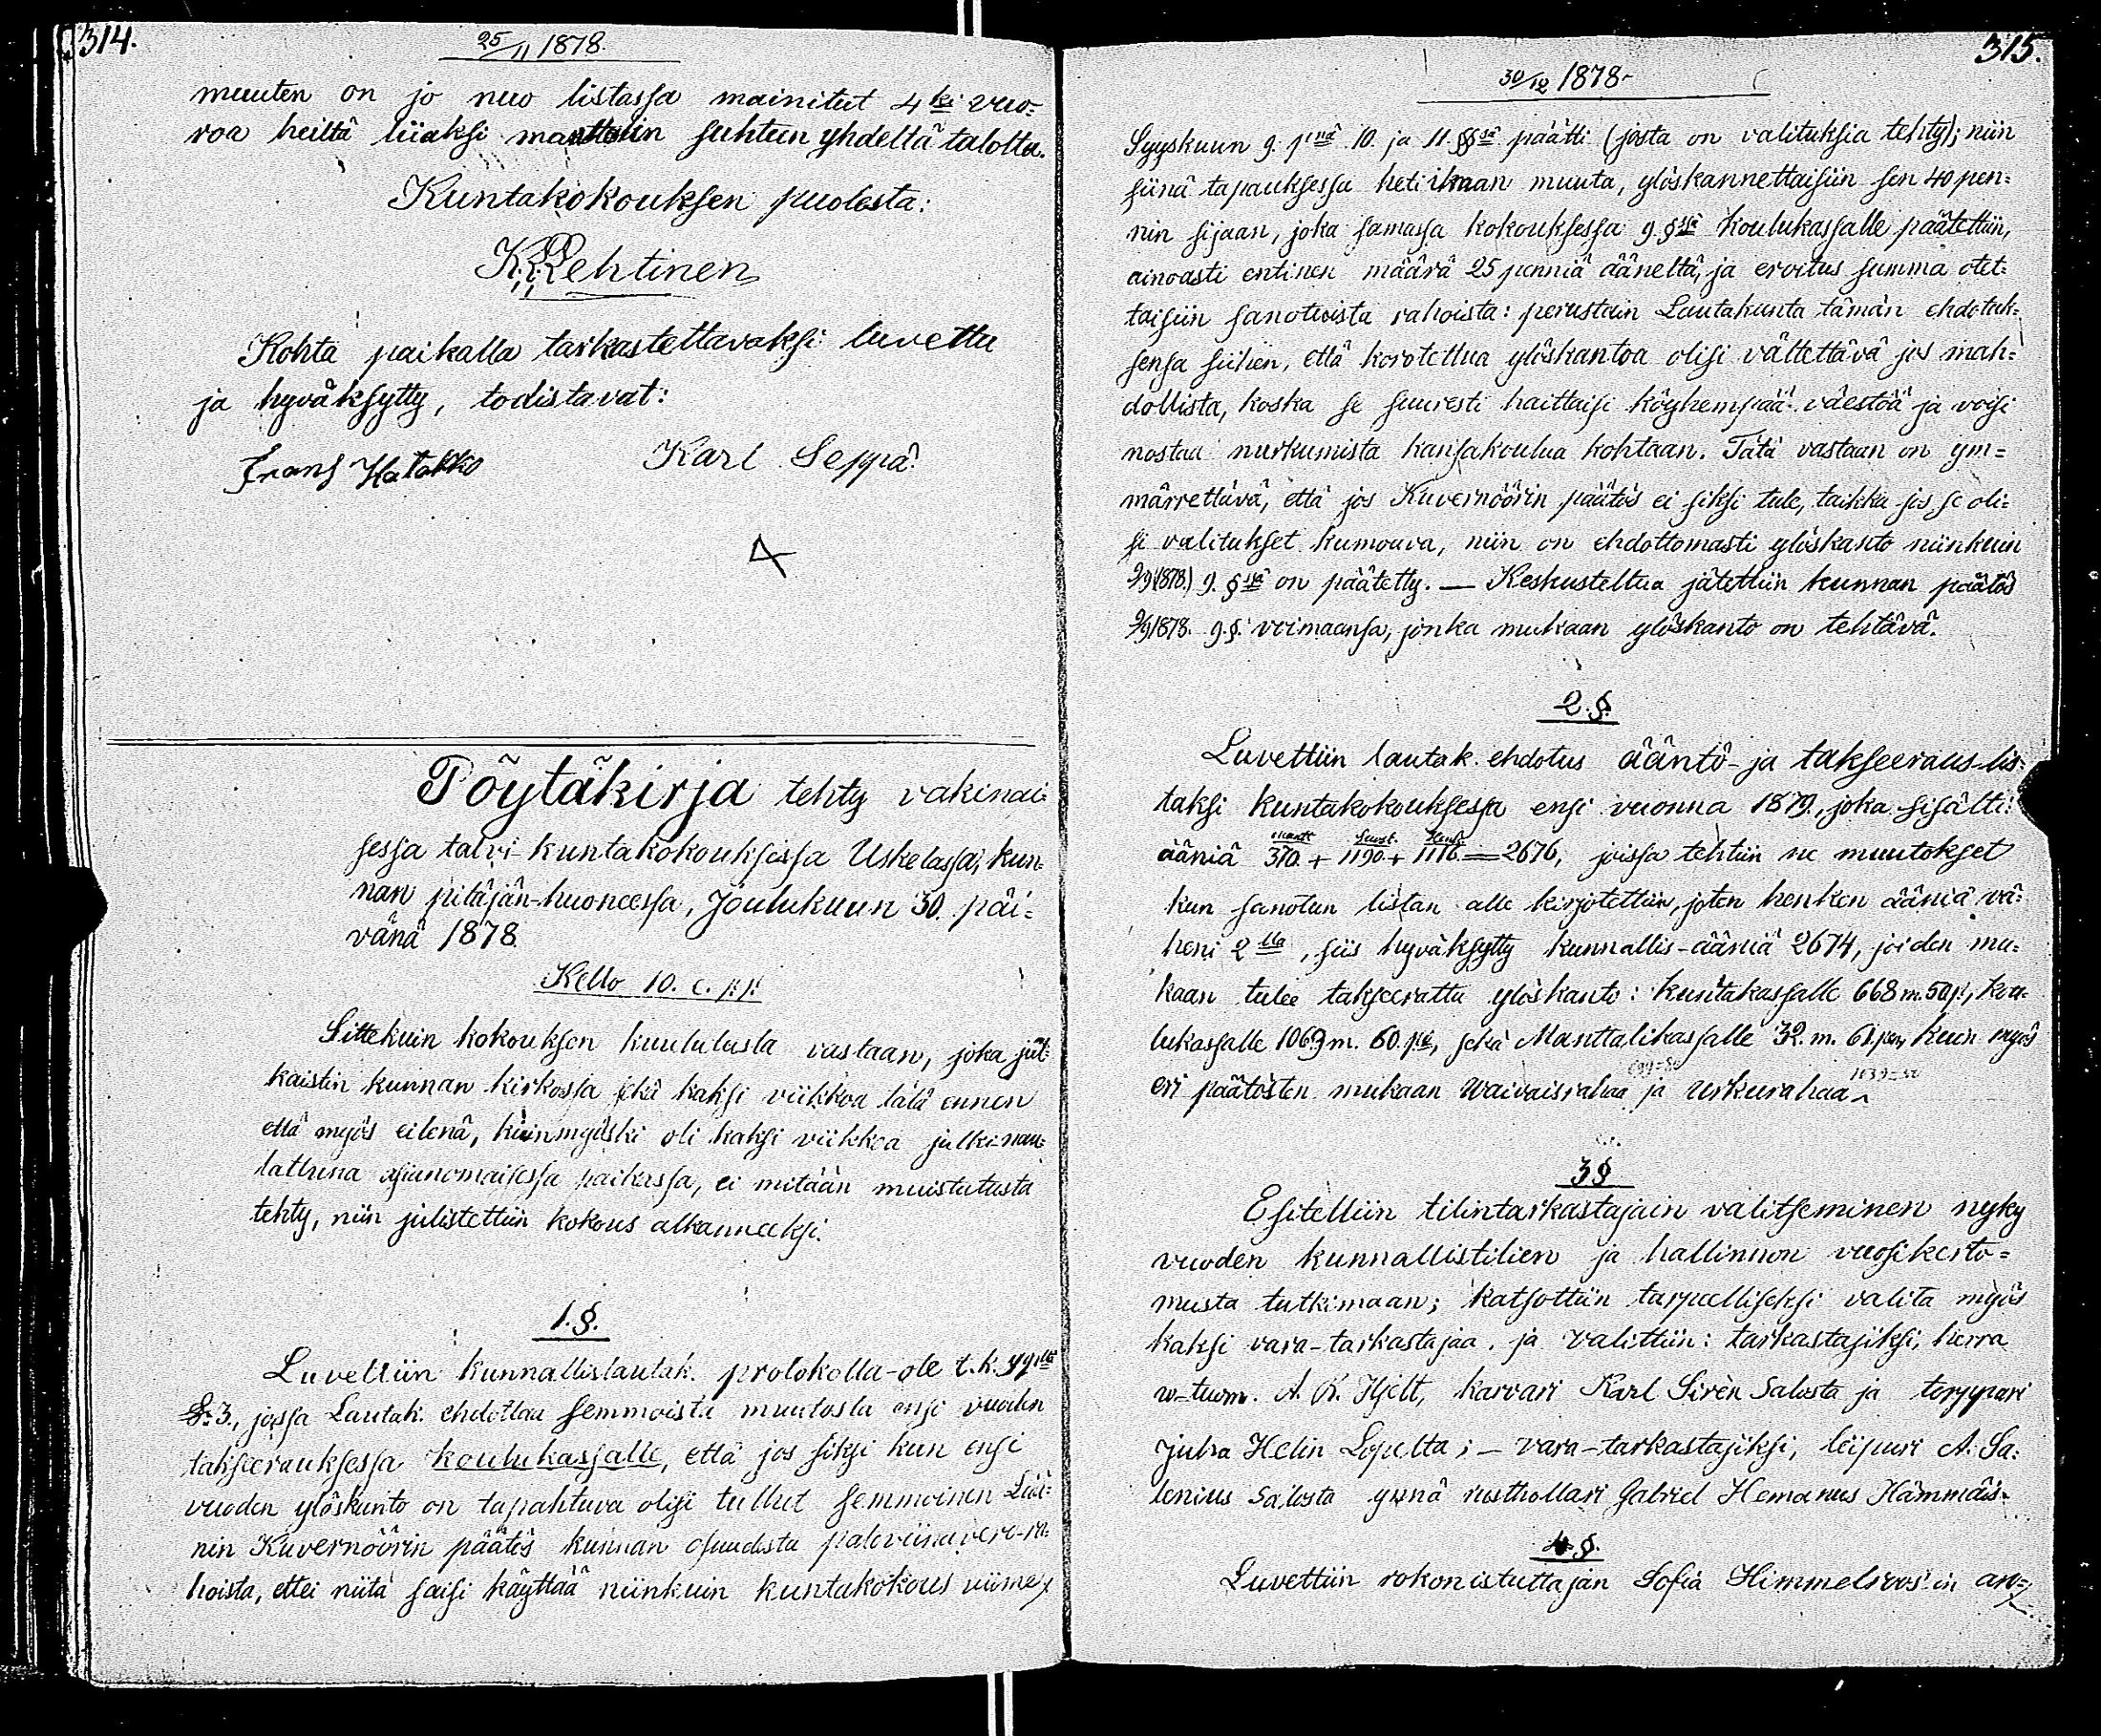 314.
25/11 1878.
muuten on jo nuo listassa mainitut 4 ksi vuo=
roa heiltä liiaksi manttalin suhtun yhdeltä talolta.
Kuntakokouksen puolesta:
K. Lehtinen
Kohta paikalla tarkastettavaksi luvettu
ja hyväksytty, todistavat:
Frans Hatakko Karl Seppä
Pöytäkirja tehty vakinai=
sessa talvi-kuntakokouksessa Uskelassa, kun=
nan pitäjän-huoneessa, Joulukuun 30. päi=
vänä 1878.
Kello 10. e. p.p.
Sittekuin kokouksen kuulutusta vastaan, joka jul=
kaistin kunnan kirkossa sekä kaksi viikkoa tätä ennen
että myös eilenä, kuinmyöski oli kaksi viikkoa julkinau=
lattuna asianomaisessa paikassa, ei mitään muistutusta
tehty, niin julistettiin kokous alkanneeksi.
1.§.
Luvettiin kunnallislautak. protokolla-ote t.k.
§: 3., jossa Lautak. ehdottaa semmoista muutosta ensi vuoden
takseerauksessa koulukassalle, että jos siksi kun ensi
vuoden ylöskanto on tapahtuva olisi tullut semmoinen Lää=
nin Kuvernöörin päätös kunnan osuudesta paloviinavero-ra=
hoista, ettei niitä saisi käyttää niinkuin kuntakokous viime
315.
30/12 1878.
Syyskuun 9. pnä 10. ja 11. §§sä päätti (josta on valituksia tehty); niin
siinä tapauksessa heti ilman muuta, ylöskannettaisiin sen 40 pen=
nin sijaan, joka samassa kokouksessa 9. §sä koulukassalle päätettiin,
ainoasti entinen määrä 25 penniä ääneltä, ja eroitus summa otet=
taisiin sanotuista rahoista: perustain Lautakunta tämän ehdotuk=
sensa siihen, että korotettua ylöskantoa olisi vältettävä jos mah=
dollista, koska se suuresti haittaisi köyhempää väestöä ja voisi
nostaa nurkumista kansakoulua kohtaan. Tätä vastaan on ym=
märrettävä, että jos Kuvernöörin päätös ei siksi tule, taikka jos se oli=
si valitukset kumoava, niin on ehdottomasti ylöskanto niinkuin
9/9 (1878) 9. §sä on päätetty. — Keskusteltua jätettiin kunnan päätös
9/9 1878. 9.§. voimaansa, jonka mukaan ylöskanto on tehtävä.
2.§.
Luvettiin lautak. ehdotus ääntö- ja takseeraus-lis=
taksi kuntakokouksessa ensi vuonna 1879, joka sisälti:
ääniä 370. + 1190. + 1116. = 2676, joissa tehtiin ne muutokset
kun sanotun listan alle kirjotettiin, joten henken ääniä vä=
heni 2 lla, siis hyväksytty kunnallis-ääniä 2674, joiden mu=
kaan tulee takseerattu ylöskanto: kuntakassalle 668 m. 50 p., kou=
lukassalle 1069 m. 60. pä, sekä Manttalikassalle 32. m. 61. pen, kuin myös
eri päätösten mukaan waivaisrahaa ja urkurahaa
3§
Esitelliin tilintarkastajain valitseminen nyky
vuoden kunnallistilien ja hallinnon vuosikerto=
musta tutkimaan; katsottiin tarpeelliseksi valita myös
kaksi vara-tarkastajaa. ja valittiin: tarkastajiksi, herra
w-tuom. A. R. Hjelt, karvari Karl Sirèn Salosta ja torppari
Juha Helin Lopelta; — vara-tarkastajiksi, leipuri A. Sa=
lenius Salosta ynnä rusthollari Gabriel Hemanus Hämmäis.
4.§.
Luvettiin rokonistuttajan Sofia Himmelroos'in an=